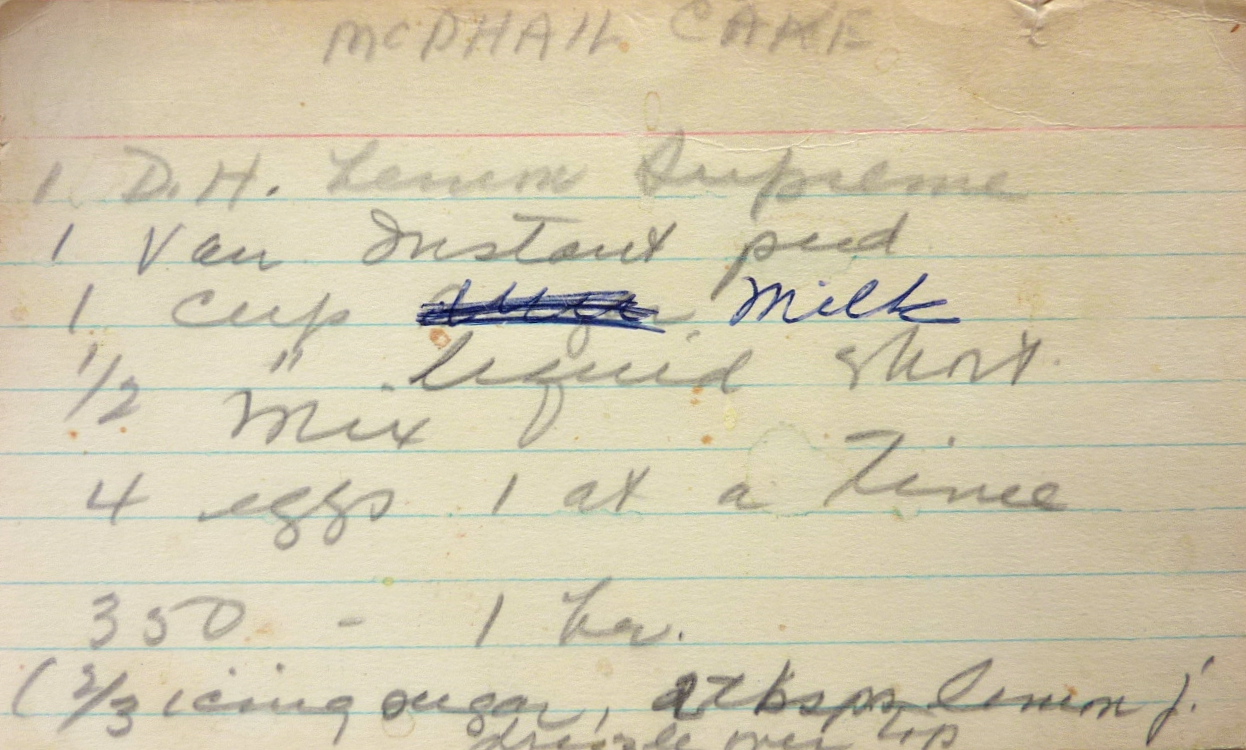 McPHAIL CAKE
1 D.H. Lemon Supreme
1 Van Instant pud
1 cup Milk
1/2 " liquid short.
Mix
4 eggs 1 at a time
350 - 1 hr.
(2/3 icing sugar, 2 tbsps lemon j.
drizzle over top